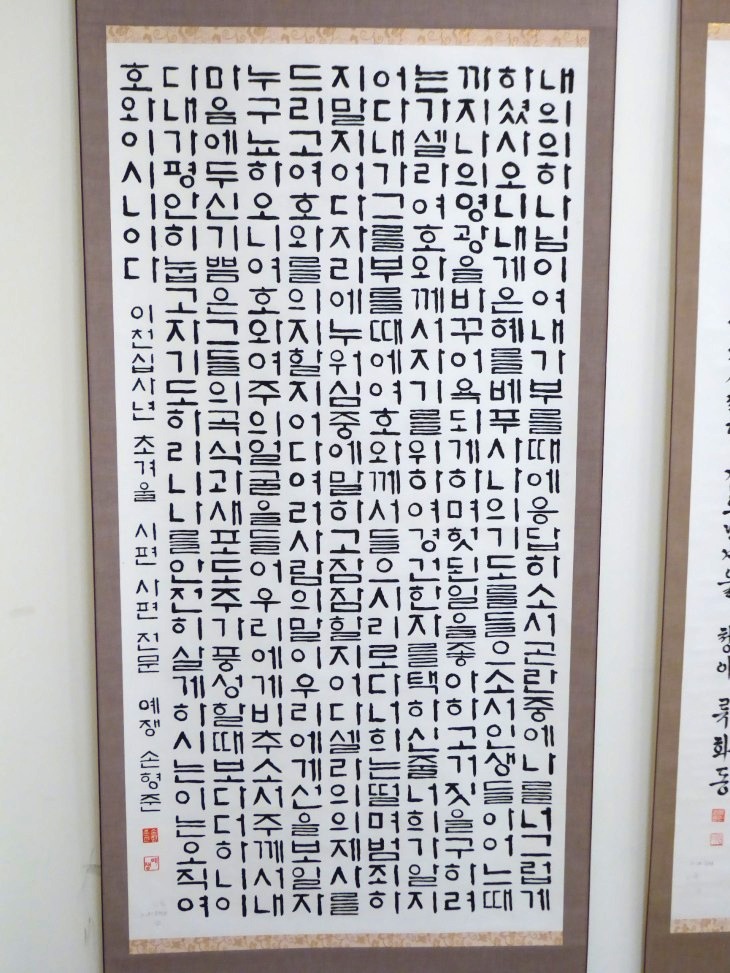 내의의하나님이여내가부를때에응답하소서곤란중에나를너그럽게
하셨사오니내게은혜를베푸사나의기도를들으소서인생들아어느때
까지나의영광을바꾸어욕되게하며헛된일을좋아하고거짓을구하려
는가셀라여호와께서자기를위하여경건한자를택하신줄너희가알지
어다내가그를부를때에여호와께서들으시리로다너희는떨며범죄하
지말지어다자리에누워심중에말하고잠잠할지어다셀라의의제사를
드리고여호와를의지할지어다여러사람의말이우리에게선을보일자
누구뇨하오니여호와여주의얼굴을들어우리에게비추소서주께서내
마음에두신기쁨은그들의곡식과새포도주가풍성할때보다더하니이
다내가평안히눕고자기도하리니나를안전히살게하시는이는오직여
호와이시니이다 이천십사년 초겨울 시편 사편 전문 예쟁 손형준